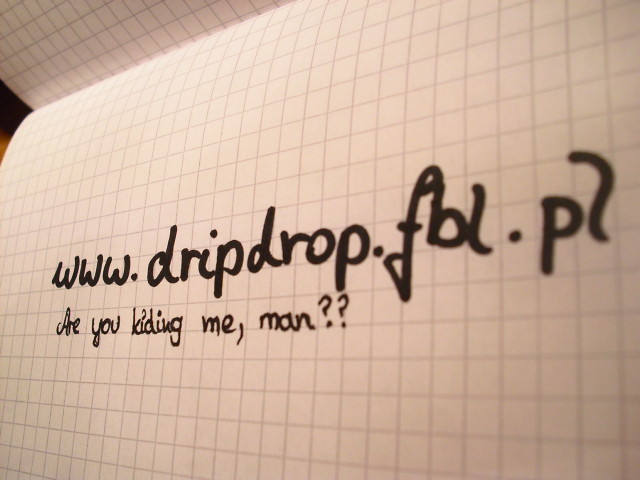 www.dripdrop.fbl.pl
Are you kiding me, man??